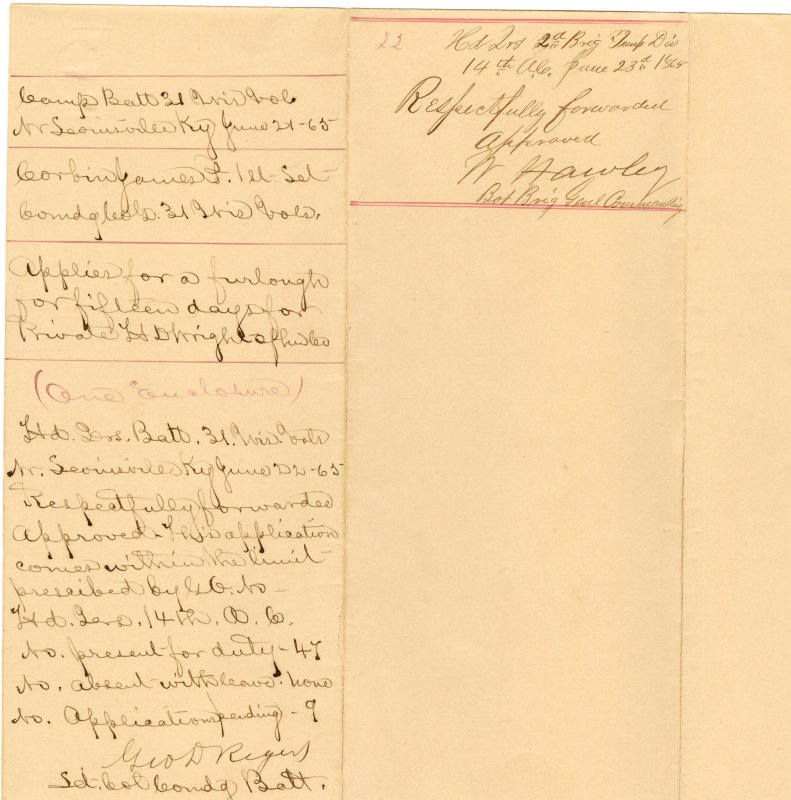 Camp Batt 31 Wis Vols
Nr Louisville Ky June 21-65
Corbin James F. 1st Sgt
Comdg Co. 31 Wis Vols.
Applies for a furlough
for fifteen days for
Private H D Wright of his Co
(One Enclosure)
Hd. Qrs. Batt. 31. Wis. Vols
Nr. Louisville Ky June 22-65
Respectfully forwarded
Approved. This application
comes within the limit
prescibed by G O. No -
Hd. Qrs. 14th. A. C.
No. present for duty - 47
No. absent with leave. none
No. Application pending - 9
Geo D Rogers
Lt. Col Comdg Batt.
22
Hd Qrs 2nd Brig Temp Div
14th A.C. June 23d 1865
Respectfully forwarded
Approved
W Hawley
Bvt Brig Genl Commanding